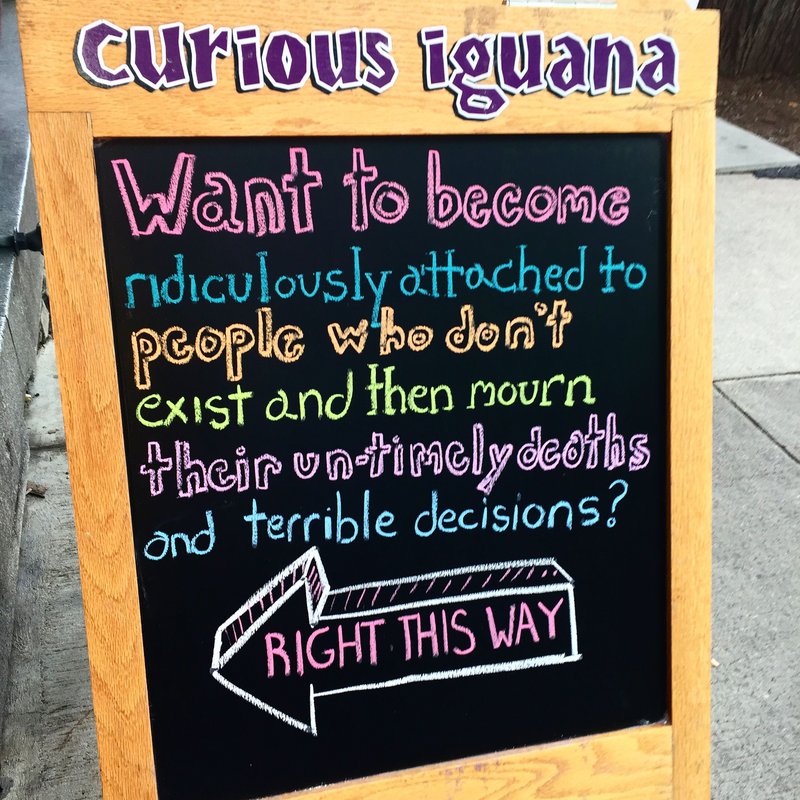 curious iguana
Want to become
ridiculously attached to
people who don't
exist and then mourn
their un-timely deaths
and terrible decisions?
RIGHT THIS WAY